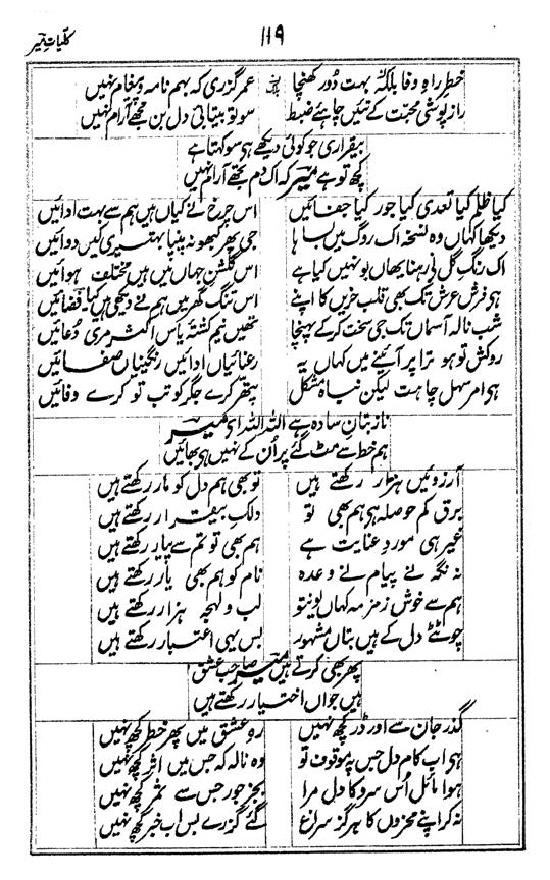 ۱۱۹
کلیاتِ میر
خطِ راہِ وفا بلکہ بہت دور کھنچا عمر گزری کہ بہم نامہ و پیغام نہیں
راز پوشی محبت کے تئیں چاہئے ضبط سو تو بیتابیٔ دل بن مجھے آرام نہیں
بیقراری جو کوئی دیکھے ہی سو کہتا ہے
کچھ تو ہے میر کہ اک دم تجھے آرام نہیں
کیا ظلم کیا تعدی کیا جور کیا جفائیں اس چرخ نے کیاں ہیں ہم سے بہت ادائیں
دیکھا کہاں وہ نسخہ اک روگ میں بسا ہا جی پھر کبھو نہ پنپا بہتیری کیں دوائیں
اک رنگ گل نے رہنا یھاں یو نہیں کیا ہے اس گلشنِ جہاں میں ہیں مختلف ہوائیں
ہی فرش عرش تک بھی قلب حزیں کا اپنے اس تنگ گھر میں ہم نے دیکھی ہیں کیا فضائیں
شب نالہ آسماں تک جی سخت کر کے پہنچا تھیں نیم کشتۂ یاس اکثر مری دعائیں
روکش تو ہو ترا پر آئینے میں کہاں یہ رعنائیاں ادائیں رنگینیاں صفائیں
ہی امر سہل چاہت لیکن نباہ مشکل پتھر کرے جگر کو تب تو کرے وفائیں
نازِ بتانِ سادہ ہے اللہ اللہ ای میر
ہم خط سے مٹ گئے پر اُن کے نہیں ہی بھائیں
آرزوئیں ہزار رکھتے ہیں تو بھی ہم دل کو مار رکھتے ہیں
برق کم حوصلہ ہی ہم بھی تو دلکِ بیقرار رکھتے ہیں
غیر ہی موردِ عنایت ہے ہم بھی تو تم سے پیار رکھتے ہیں
نہ نگہ نے پیام نے وعدہ نام کو ہم بھی یار رکھتے ہیں
ہم سے خوش زمزمہ کہاں یونتو لب و لہجہ ہزار رکھتے ہیں
چوٹٹے دل کے ہیں بتاں مشہور بس یہی اعتبار رکھتے ہیں
پھر بھی کرتے ہیں میر صاحب عشق
ہیں جواں اختیار رکھتے ہیں
گذر جان سے اور ڈر کچھ نہیں رہِ عشق میں پھر خطر کچھ نہیں
ہی اب کام دل جس پہ موقوف تو وہ نالہ کہ جس میں اثر کچھ نہیں
ہوا مائل اُس سرو کا دل مرا بجز جور جس سے ثمر کچھ نہیں
نہ کر اپنے محزوں کا ہرگز سراغ گئے گزرے بس اب خبر کچھ نہیں